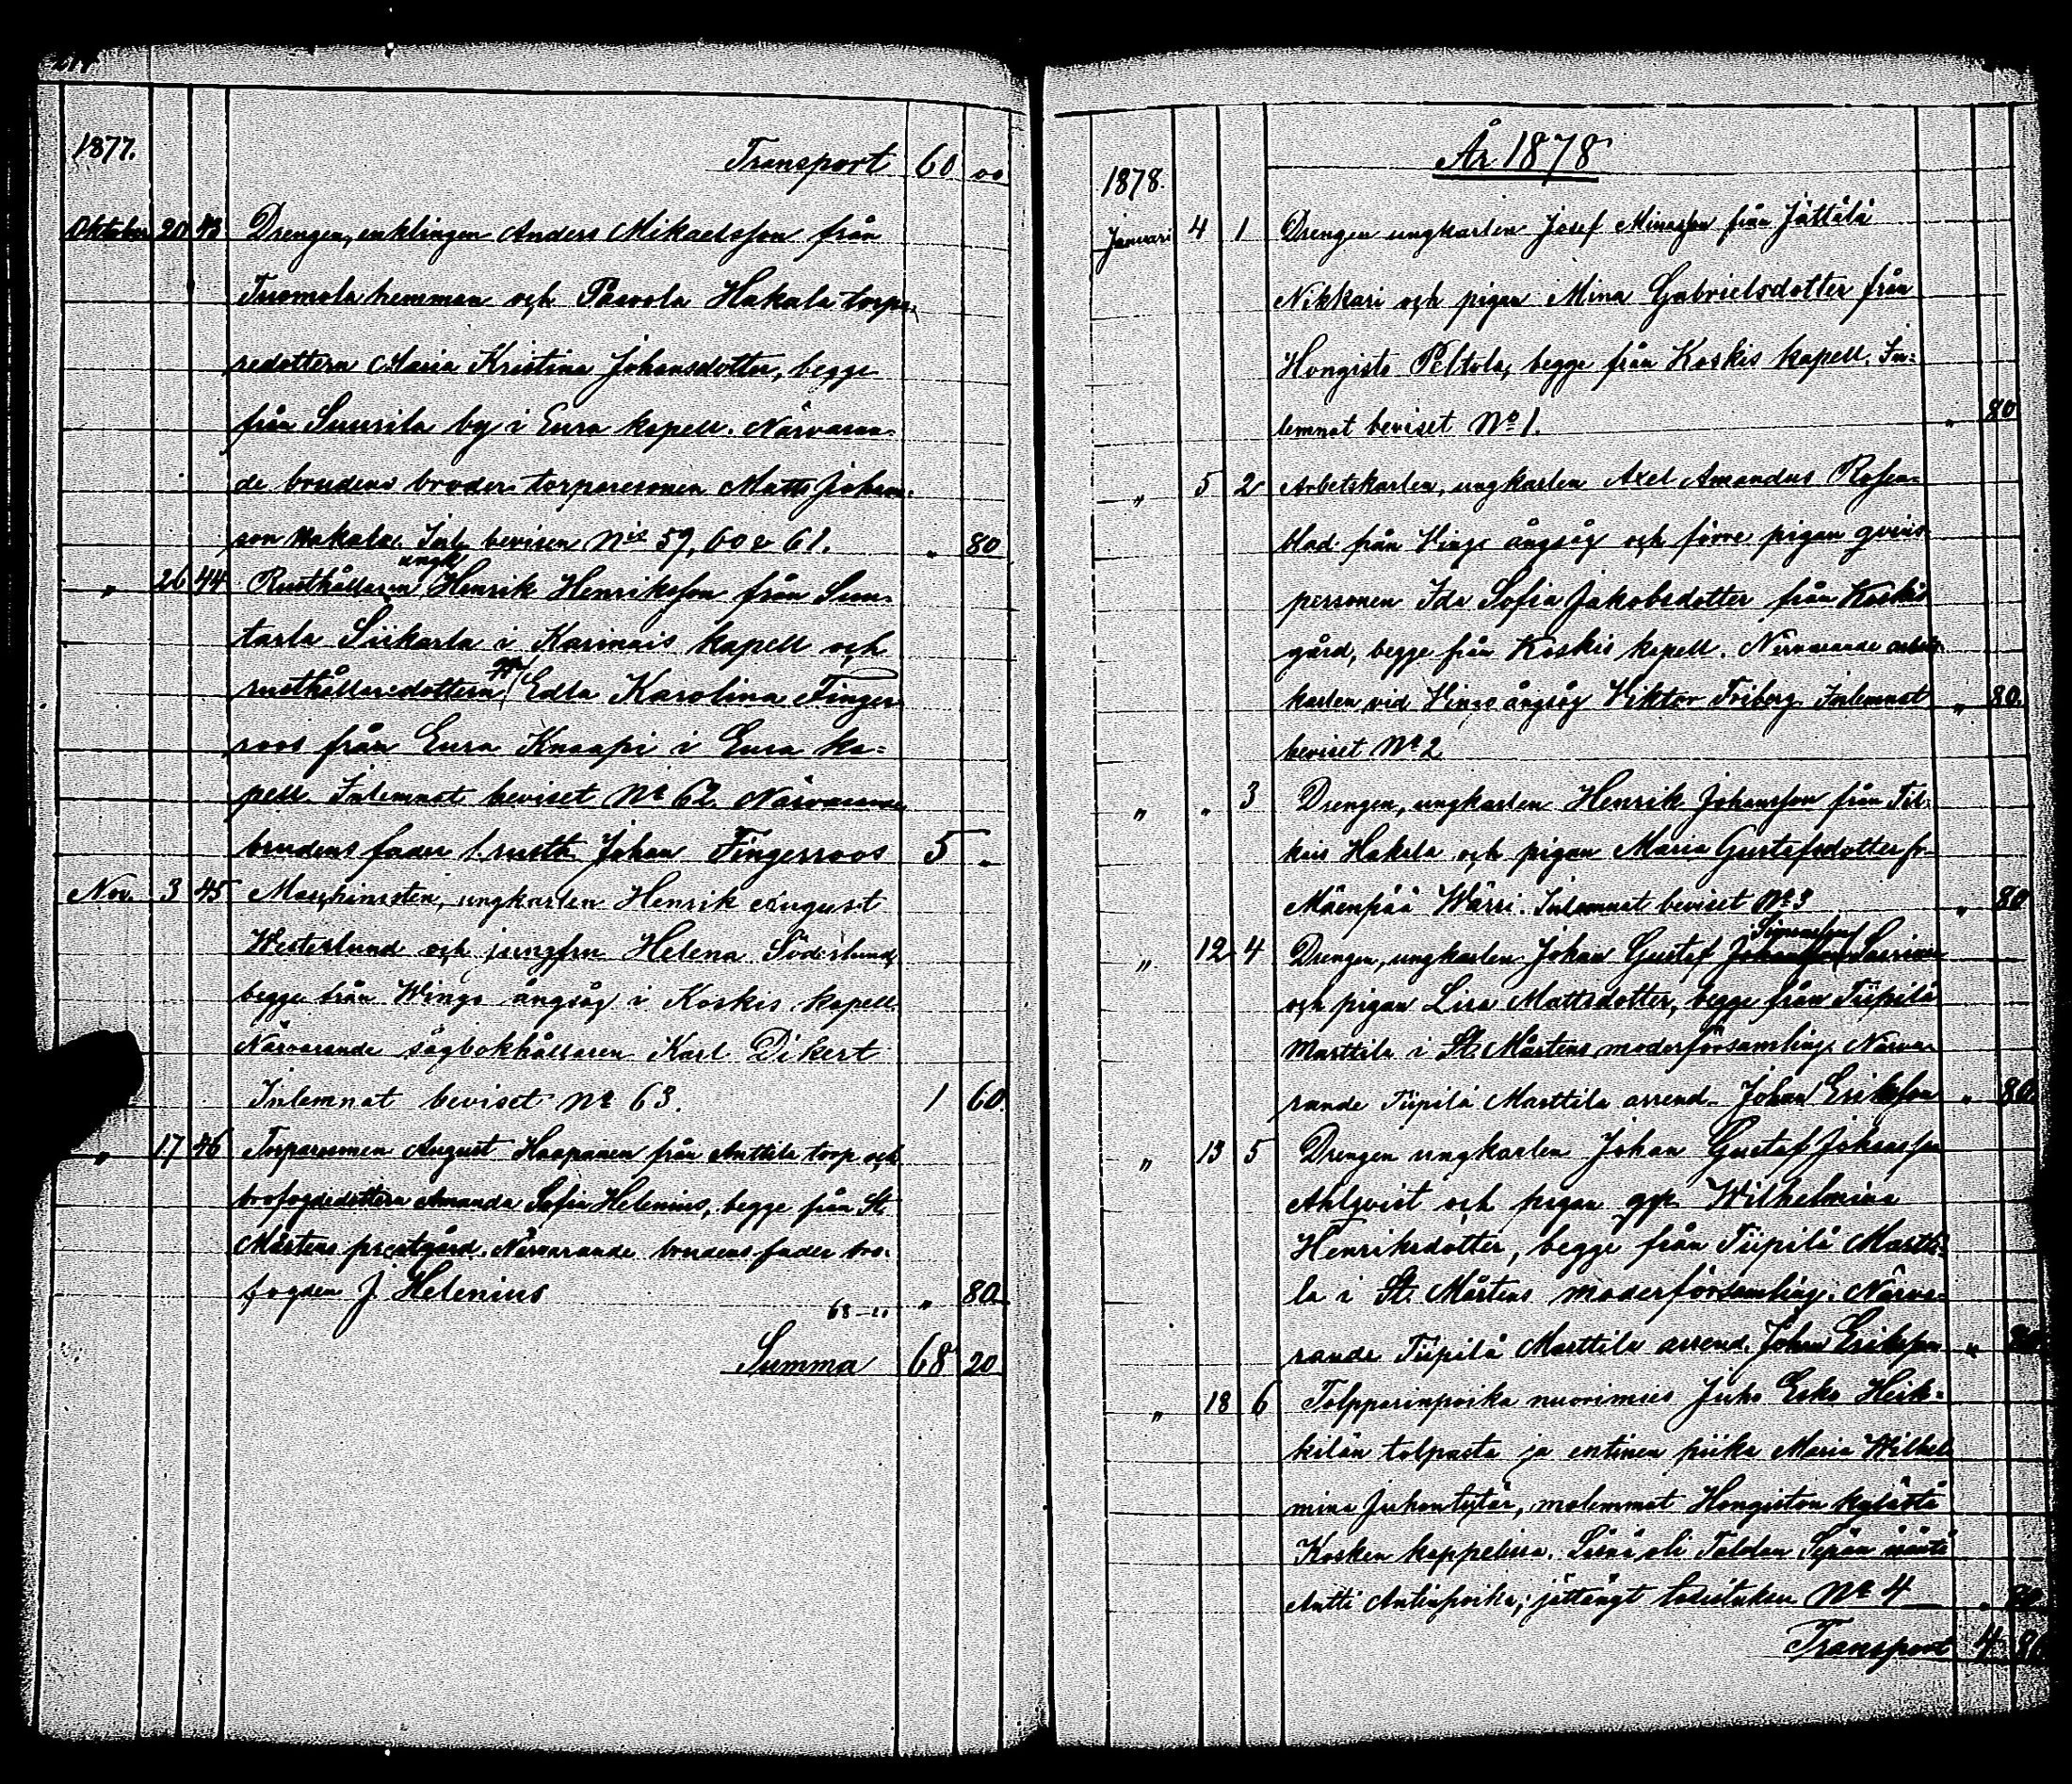 1877.
Transport 60 00
Oktober 20 43 Drengen, enklingen Anders Mikaelsson från
Tuomola hemman och Paavola Hakala torpa-
redottern Maria Kristina Johansdotter, begge
från Suurila by i Eura kapell. Närvaran-
de brudens broder torparesonen Matts Johans-
son Hakala. Inl. bevisen Nis 59, 60 & 61. " 80
" 26 44 Rusthållaren ungk Henrik Henriksson från Suu-
tarla Siikarla i Karinais kapell och
rusthållaredottern Edla Karolina Finger-
roos från Eura Knaapi i Eura ka-
pell. Inlemnat beviset No 62. Närvarande
brudens fader f. rusth. Johan Fingerroos 5 "
Nov. 3 45 Maschinisten, ungkarlen Henrik August
Westerlund och jungfru Helena Söderlund,
begge från Wingo ångsåg i Koskis kapell.
Närvarande sågbokhållaren Karl Dikert
Inlemnat beviset No 63. 1 60.
" 17 46 Torparesonen August Haapanen från Anttila torp och
brofogdedottern Amanda Sofia Helenius, begge från St
Mårtens prestgård. Närvarande brudens fader bro-
fogden J. Helenius " 80
68–20
Summa 68 20
År 1878
1878.
Januari 4 1 Drengen ungkarlen Josef Minasson från Jättälä
Nikkari och pigan Mina Gabrielsdotter från
Hongisto Peltola, begge från Koskis kapell. In-
lemnat beviset No 1. " 80
" 5 2 Arbetskarlen, ungkarlen Axel Amandus Rosen-
blad från Wingo ångsåg och förre pigan qvins-
personen Ida Sofia Jakobsdotter från Koskis
gård, begge från Koskis kapell. Närvarande arbets-
karlen vid Wingo ångsåg Viktor Friberg. Inlemnat " 80.
beviset No 2
" " 3 Drengen, ungkarlen Henrik Johansson från
Hakala och pigan Maria Gustafsdotter fr.
Mäenpää Wärri. Inlemnat beviset No 3 " 80
Simonsson
" 12 4 Drengen, ungkarlen Johan Gustaf Johansson
och pigan Lisa Mattsdotter, begge från Tiipilä
Marttila i St. Mårtens moderförsamling. Närva-
rande Tiipilä Marttila arrend. Johan Eriksson " 80
" 13 5 Drengen ungkarlen Johan Gustaf Johansson
Ahlqvist och pigan qpn Wilhelmina
Henriksdotter, begge från Tiipilä Martti-
la i St. Mårtens moderförsamling. Närva-
rande Tiipilä Marttila arrend. Johan Eriksson " 80
" 18 6 Tolpparinpoika nuorimies Juho Esko Heik-
kilän tolpasta ja entinen piika Maria Wilhel-
mina Juhontytär, molemmat Hongiston kylästä
Kosken kappelissa. Läsnä oli Talolan Sepän isäntä
Antti Antinpoika; jättänyt todistuksen No 4 " 80
Transport 4 80